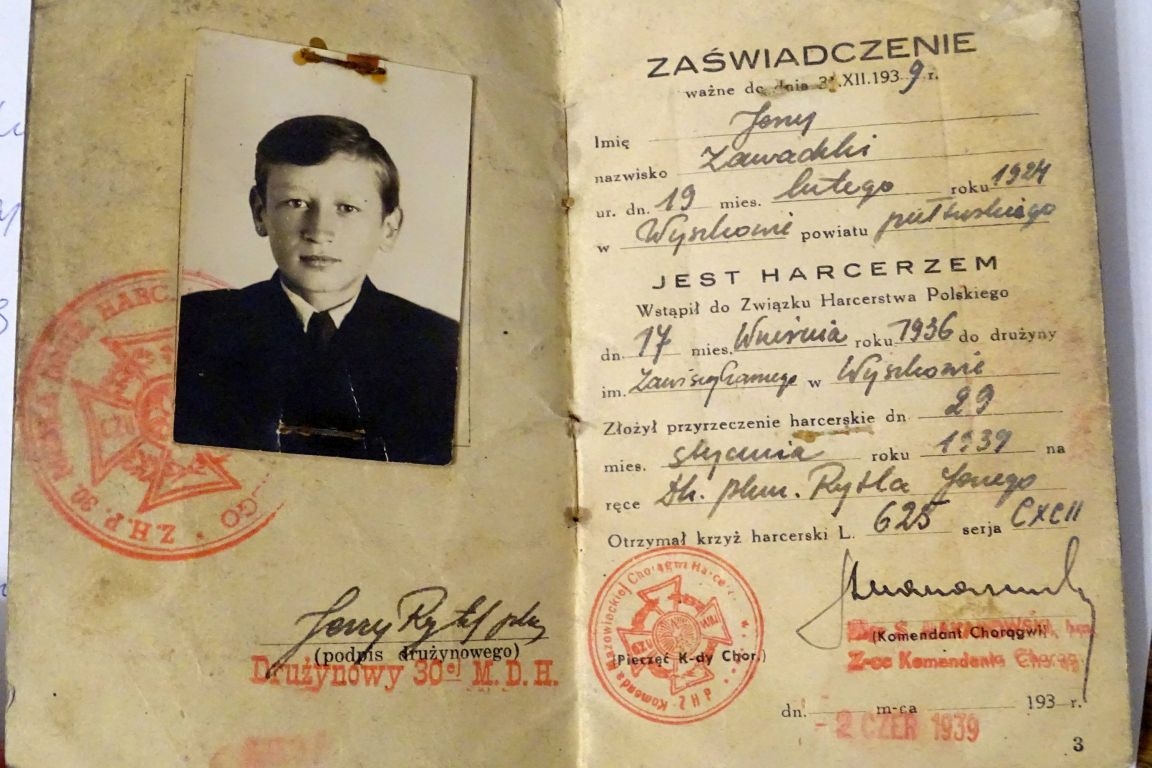 Z.H.P. 30. HARC
GO
Jerzy Rytel phm
(podpis drużynowego)
Drużynowy 30ej M. D. H.
ZAŚWIADCZENIE
ważne do dnia 31.XII.1939 r.
Imię Jerzy
nazwisko Zawadzki
ur. dn. 19 mies. lutego roku 1924
w Wyszkowie powiatu pułtuskiego
JEST HARCERZEM
Wstąpił do Związku Harcerstwa Polskiego
dn. 17 mies. Września roku 1936 do drużyny
im. Zawiszy Czarnego w Wyszkowie
Złożył przyrzeczenie harcerskie dn. 29
mies. stycznia roku 1939 na
ręce Dh. phm. Rytla Jerzego
Otrzymał krzyż harcerski L. 625 serja CXCII
Komenda Mazowieckiej Chorągwi Harcerzy
(Komendant Chorągwi)
Z-ca Komendanta
(Pieczęć K-dy Chor.)
dn. m-ca 193 r.
- 2 CZER 1939
3